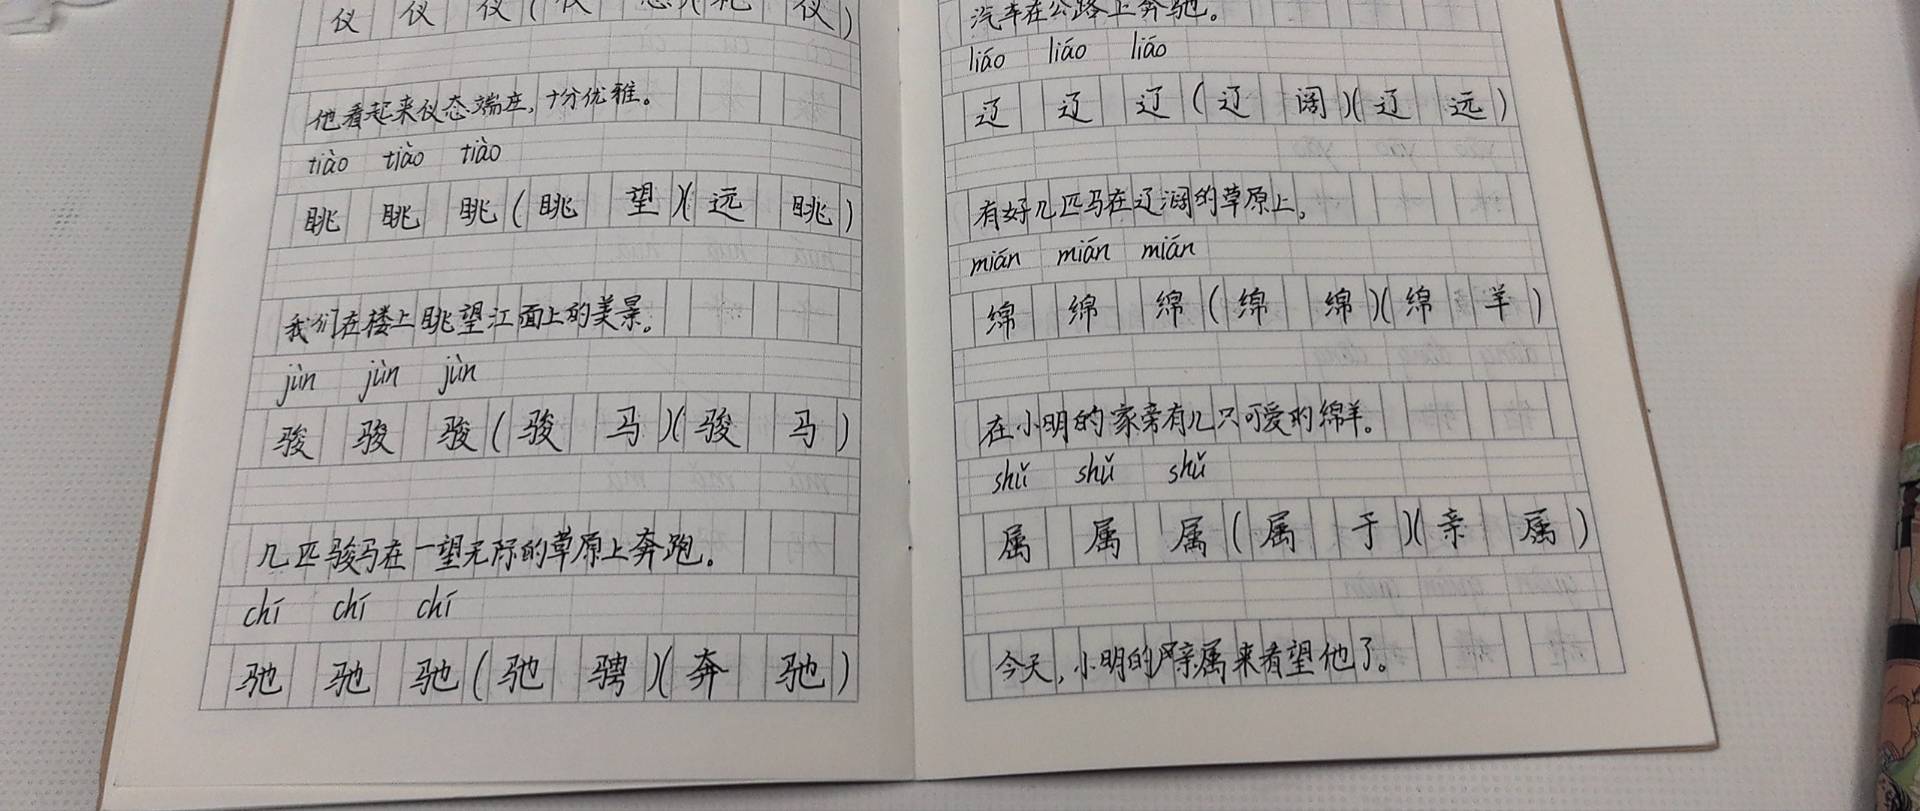 仪 仪 仪 (仪 态)(礼 仪)
他看起来仪态端庄，十分优雅。
tiào tiào tiào
眺 眺 眺 (眺 望)(远 眺)
我们在楼上眺望江面上的美景。
jùn jùn jùn
骏 骏 骏 (骏 马)(骏 马)
几匹骏马在一望无际的草原上奔跑。
chí chí chí
驰 驰 驰 (驰 骋)(奔 驰)
汽车在公路上奔驰。
liáo liáo liáo
辽 辽 辽 (辽 阔)(辽 远)
有好几匹马在辽阔的草原上。
mián mián mián
绵 绵 绵 (绵 绵)(绵 羊)
在小明的家旁有几只可爱的绵羊。
shǔ shǔ shǔ
属 属 属 (属 于)(亲 属)
今天，小明的亲属来看望他了。